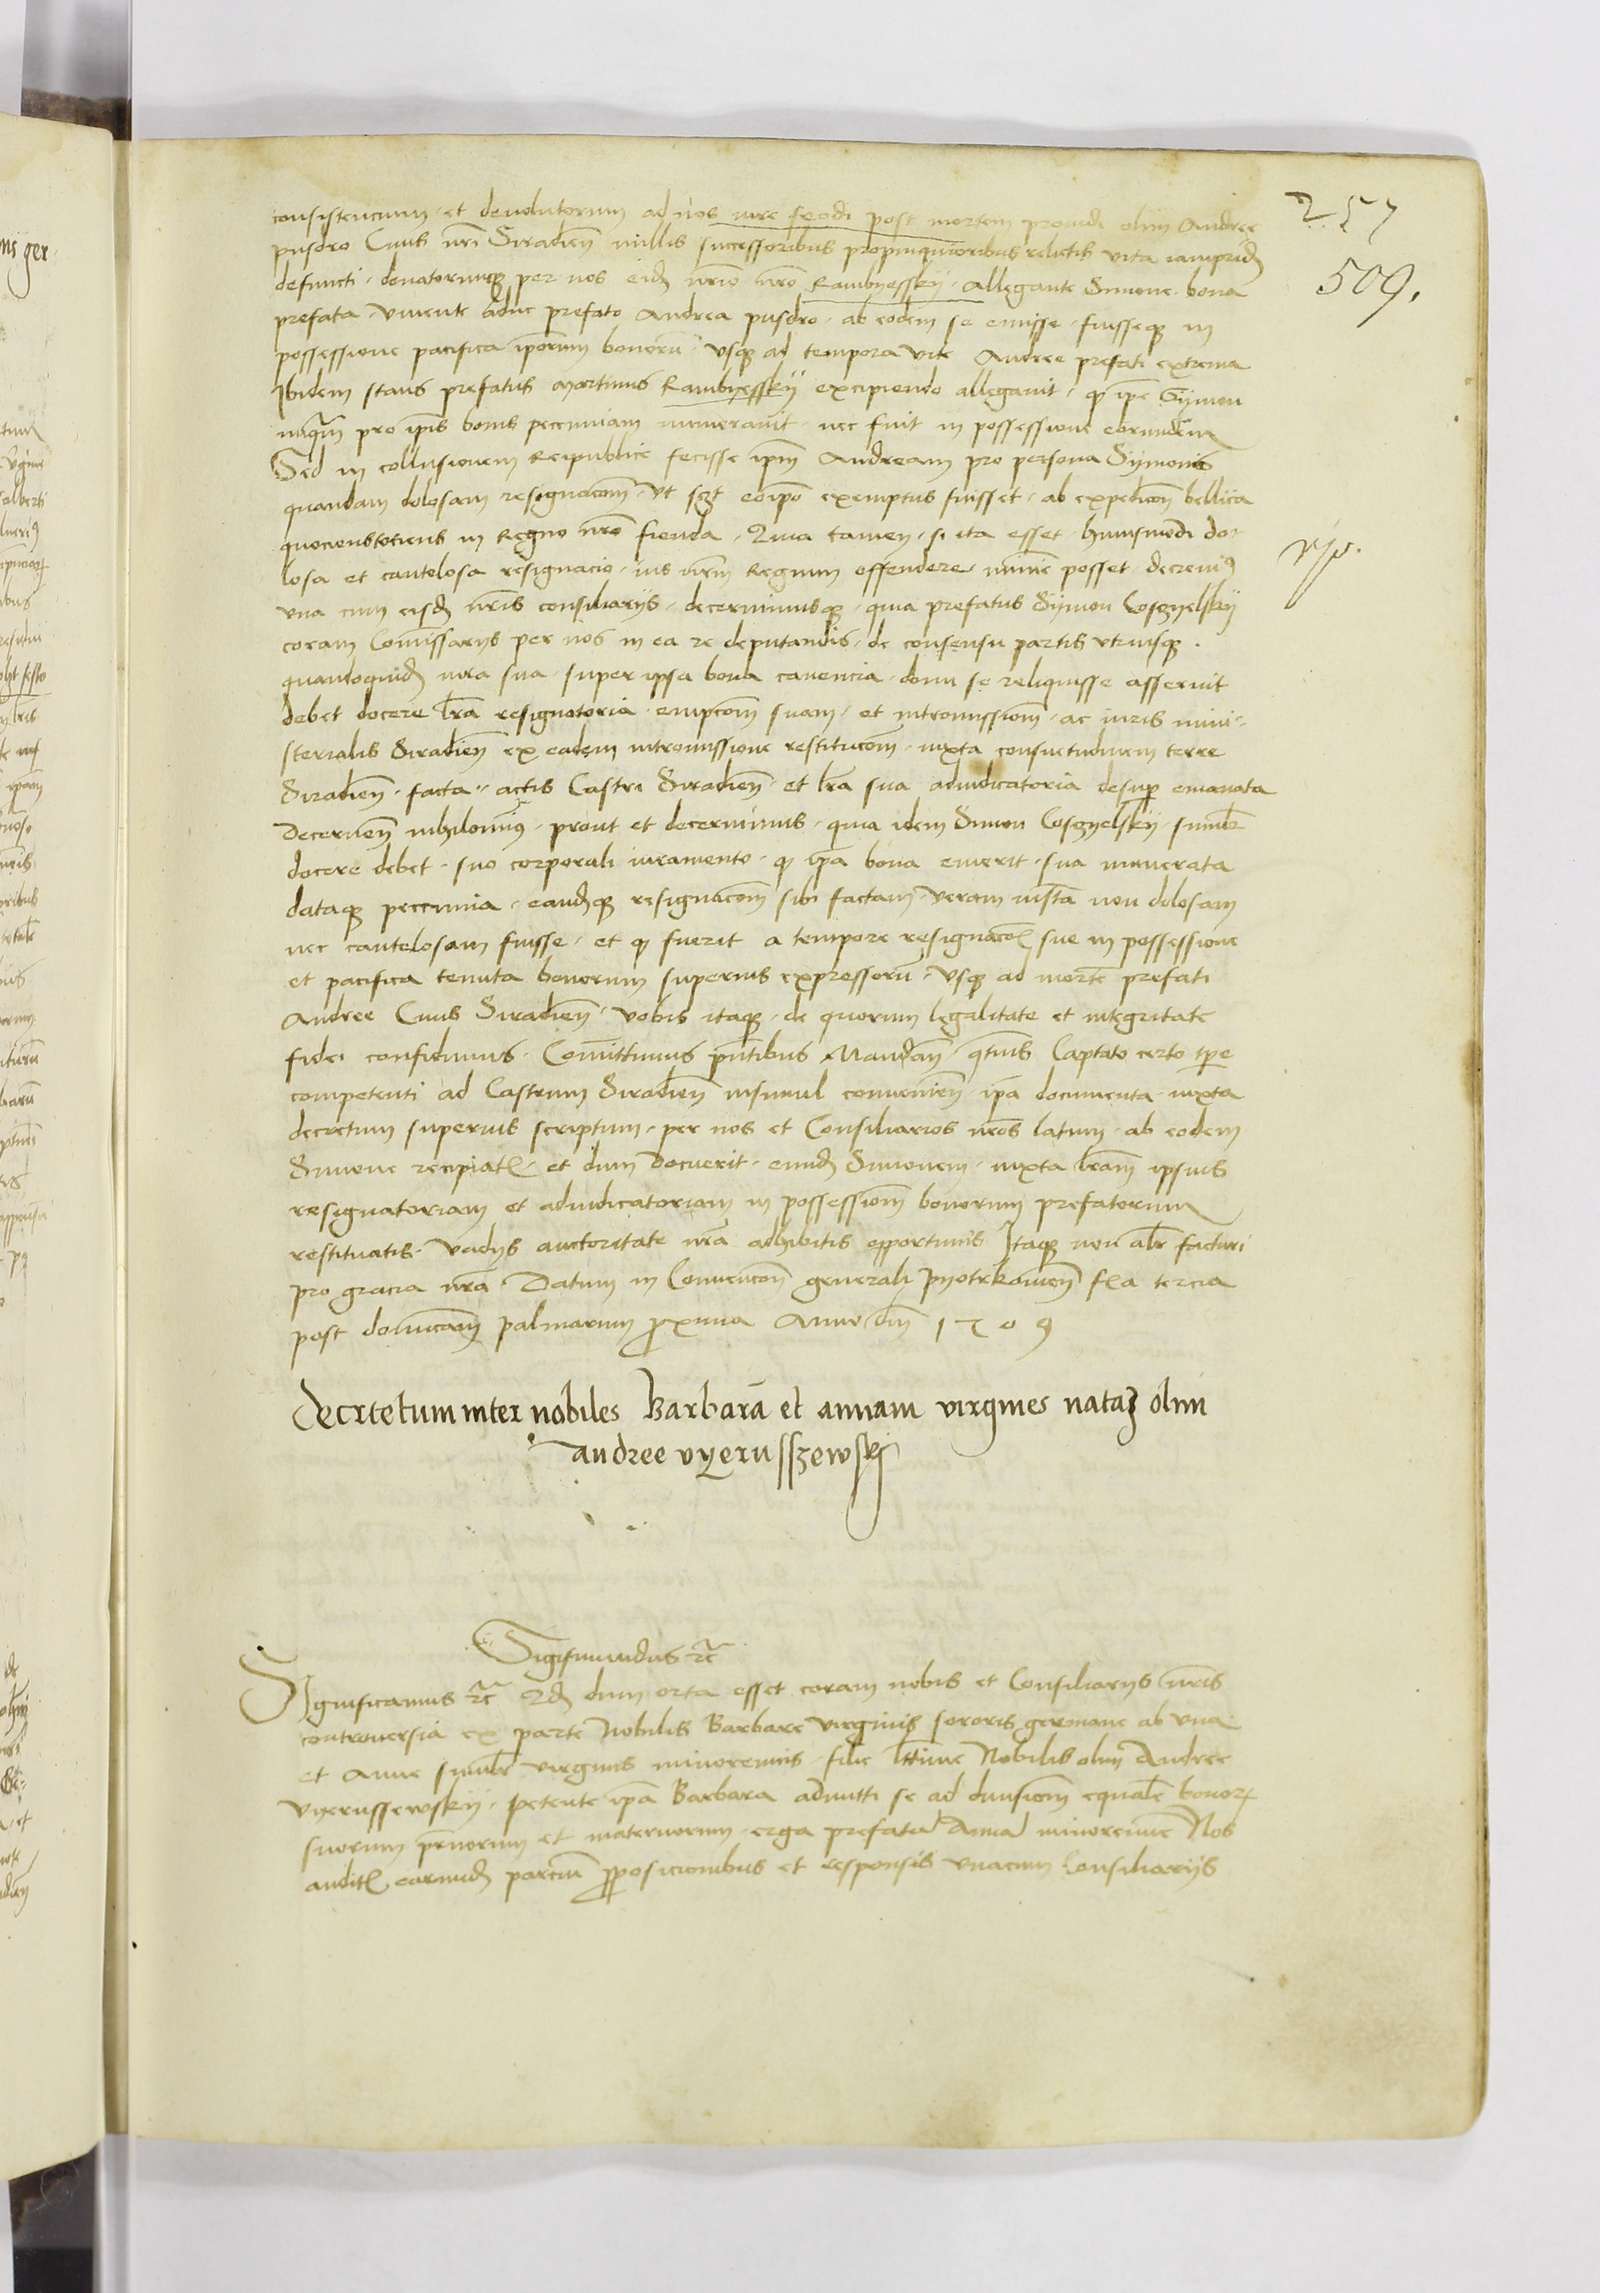 257
509.
consistencium et devolutorum ad nos iure feodi post mortem providi olim Andree
pusdro Civis nri Siradien nullis successoribus propinquioribus relictis vita iampridem
defuncti donatorumque per nos eidem nrio nro Rambyessky. Allegante Simone bona
prefata vivente adhuc prefato Andrea pusdro ab eodem se emisse fuisseque in
possessione pacifica ipsorum bonoru usque ad tempora vite Andree prefati extrema
Ibidem stans prefatus Martinus Rambyessky excipiendo allegavit, qd ipe Symon
nunqm pro ipis bonis peccuniam numeravit nec fuit in possessione eorundem
Sed in collusionem Reipublice fecisse ipm Andream pro persona Symonis
quandam dolosam resignacom ut scz eoipo exemptus fuisset ab expedicon bellica
quocienstociens in Regno nro fienda. Qua tamen si ita esset huiusmodi do-
losa et cautelosa resignacio ius nrm Regium offendere minime posset decrevimus
una cum eisdem nris consiliariis decernimusque quia prefatus Symon Cosznyelsky
coram Comissariis per nos in ea re deputandis de consensu partis utriusque.
quandoquidem iura sua super ipsa bona canencia domi se reliquisse asseruit
debet docere lra resignatoria empcom suam et intromissiom ac iuris mini-
sterialis Siradien ex eadem intromissione restitucom iuxta consuetudinem terre
Siradien facta actis Castri Siradien et lra sua adiudicatoria desuper emanata
Decernen nihilominus prout et decernimus quia idem Simon Cosznyelsky similr
docere debet suo corporali iuramento qd ipa bona emerit sua numerata
dataque peccunia eandemque resignacom sibi factam veram iusta non dolosam
nec cautelosam fuisse et qd fuerit a tempore resignacois sue in possessione
et pacifica tenuta bonorum superius expressoru usque ad morte prefati
Andree Civis Siradien. Vobis itaque de quorum legalitate et integritate
fidei confidimus. Comittimus pntibus Mandan qtnus Captato certo tpe
competenti ad Castrum Siradien insimul convenien ipa documenta iuxta
decretum superius scriptum per nos et Consiliarios nros latum ab eodem
Simone recipiatis et dum docuerit eundem Simonem iuxta lram ipsius
resignatoriam et adiudicatoriam in possessiom bonorum prefatorum
restituatis vadys auctoritate nra adhibitis opportunis Itaque non alr facturi
pro gracia nra. Datum in Convencon generali Pyotrkovien fia tercia
post dominicam palmarum proxima Anno dni 1509
Decrtetum inter nobiles Barbara et annam virgines natas olim
andree vyerusszewsky
Sigismundus etc
Significamus etc Qd dum orta esset coram nobis et Consiliariis nris
controversia ex parte Nobilis Barbare virginis sororis germane ab una
et Anne similr virginis minorennis filie lttime Nobilis olim Andree
Vyerussewsky. petente ipa Barbara admitti se ad divisiom equale bonorum
suorum pternorum et maternorum erga prefata Anna minorenne Nos
auditis earundem parciu proposicionibus et responsis unacum Consiliariis